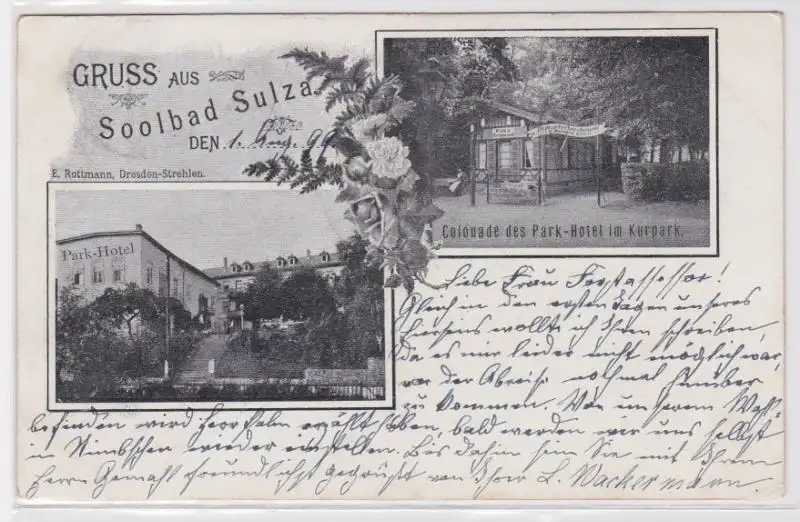 GRUSS AUS
Soolbad Sulza.
DEN 1. Aug. 99
E. Rottmann, Dresden-Strehlen.
Park-Hotel
Colonade des Park-Hotel im Kurpark.
Liebe Frau Forstassessor!
Gleich in den ersten Tagen unseres
Hierseins wollte ich Ihnen schreiben,
da es mir leider nicht möglich war,
vor der Abreise nochmal hinüber
zu kommen. Von unserem Wohl-
befinden wird Herr Palm erzählt haben, bald werden wir uns selbst
in Nimbschen wieder einstellen. Bis dahin sein Sie mit Ihrem
Herrn Gemahl freundlichst gegrüßt von Ihrer L. Wackermann.